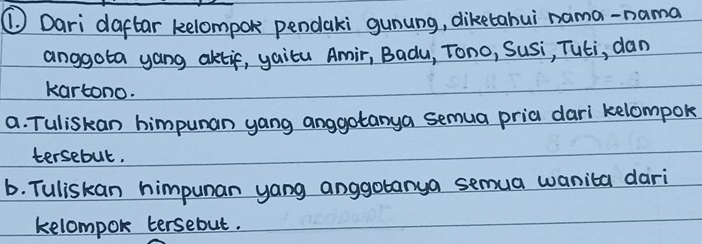 1. Dari daftar kelompok pendaki gunung, diketahui nama-nama
anggota yang aktif, yaitu Amir, Badu, Tono, Susi, Tuti, dan
Kartono.
a. Tuliskan himpunan yang anggotanya semua pria dari kelompok
tersebut.
b. Tuliskan himpunan yang anggotanya semua wanita dari
kelompok tersebut.